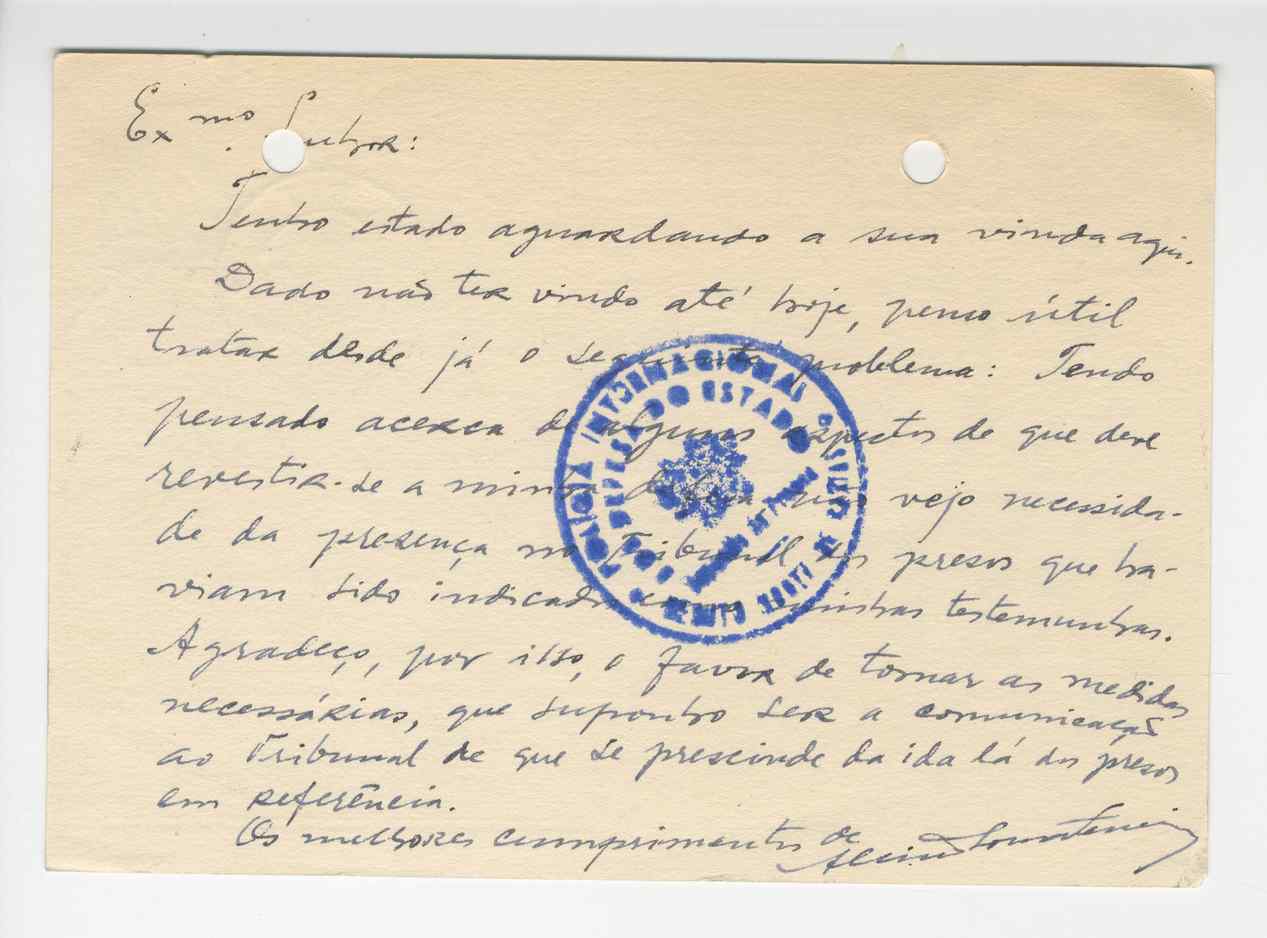 Ex.mo Senhor:
Tenho estado aguardando a sua vinda aqui.
Dado não ter vindo até hoje, penso útil
tratar desde já o seguinte problema: Tendo
pensado acerca de alguns aspectos de que deve
revestir-se a minha defesa não vejo necessida-
de da presença no Tribunal dos presos que ha-
viam sido indicados como minhas testemunhas.
Agradeço, por isso, o favor de tomar as medidas
necessárias, que suponho ser a comunicação
ao Tribunal de que se prescinde da ida lá dos presos
em referência.
Os melhores cumprimentos de
POLICIA INTERNACIONAL
E DE DEFESA DO ESTADO